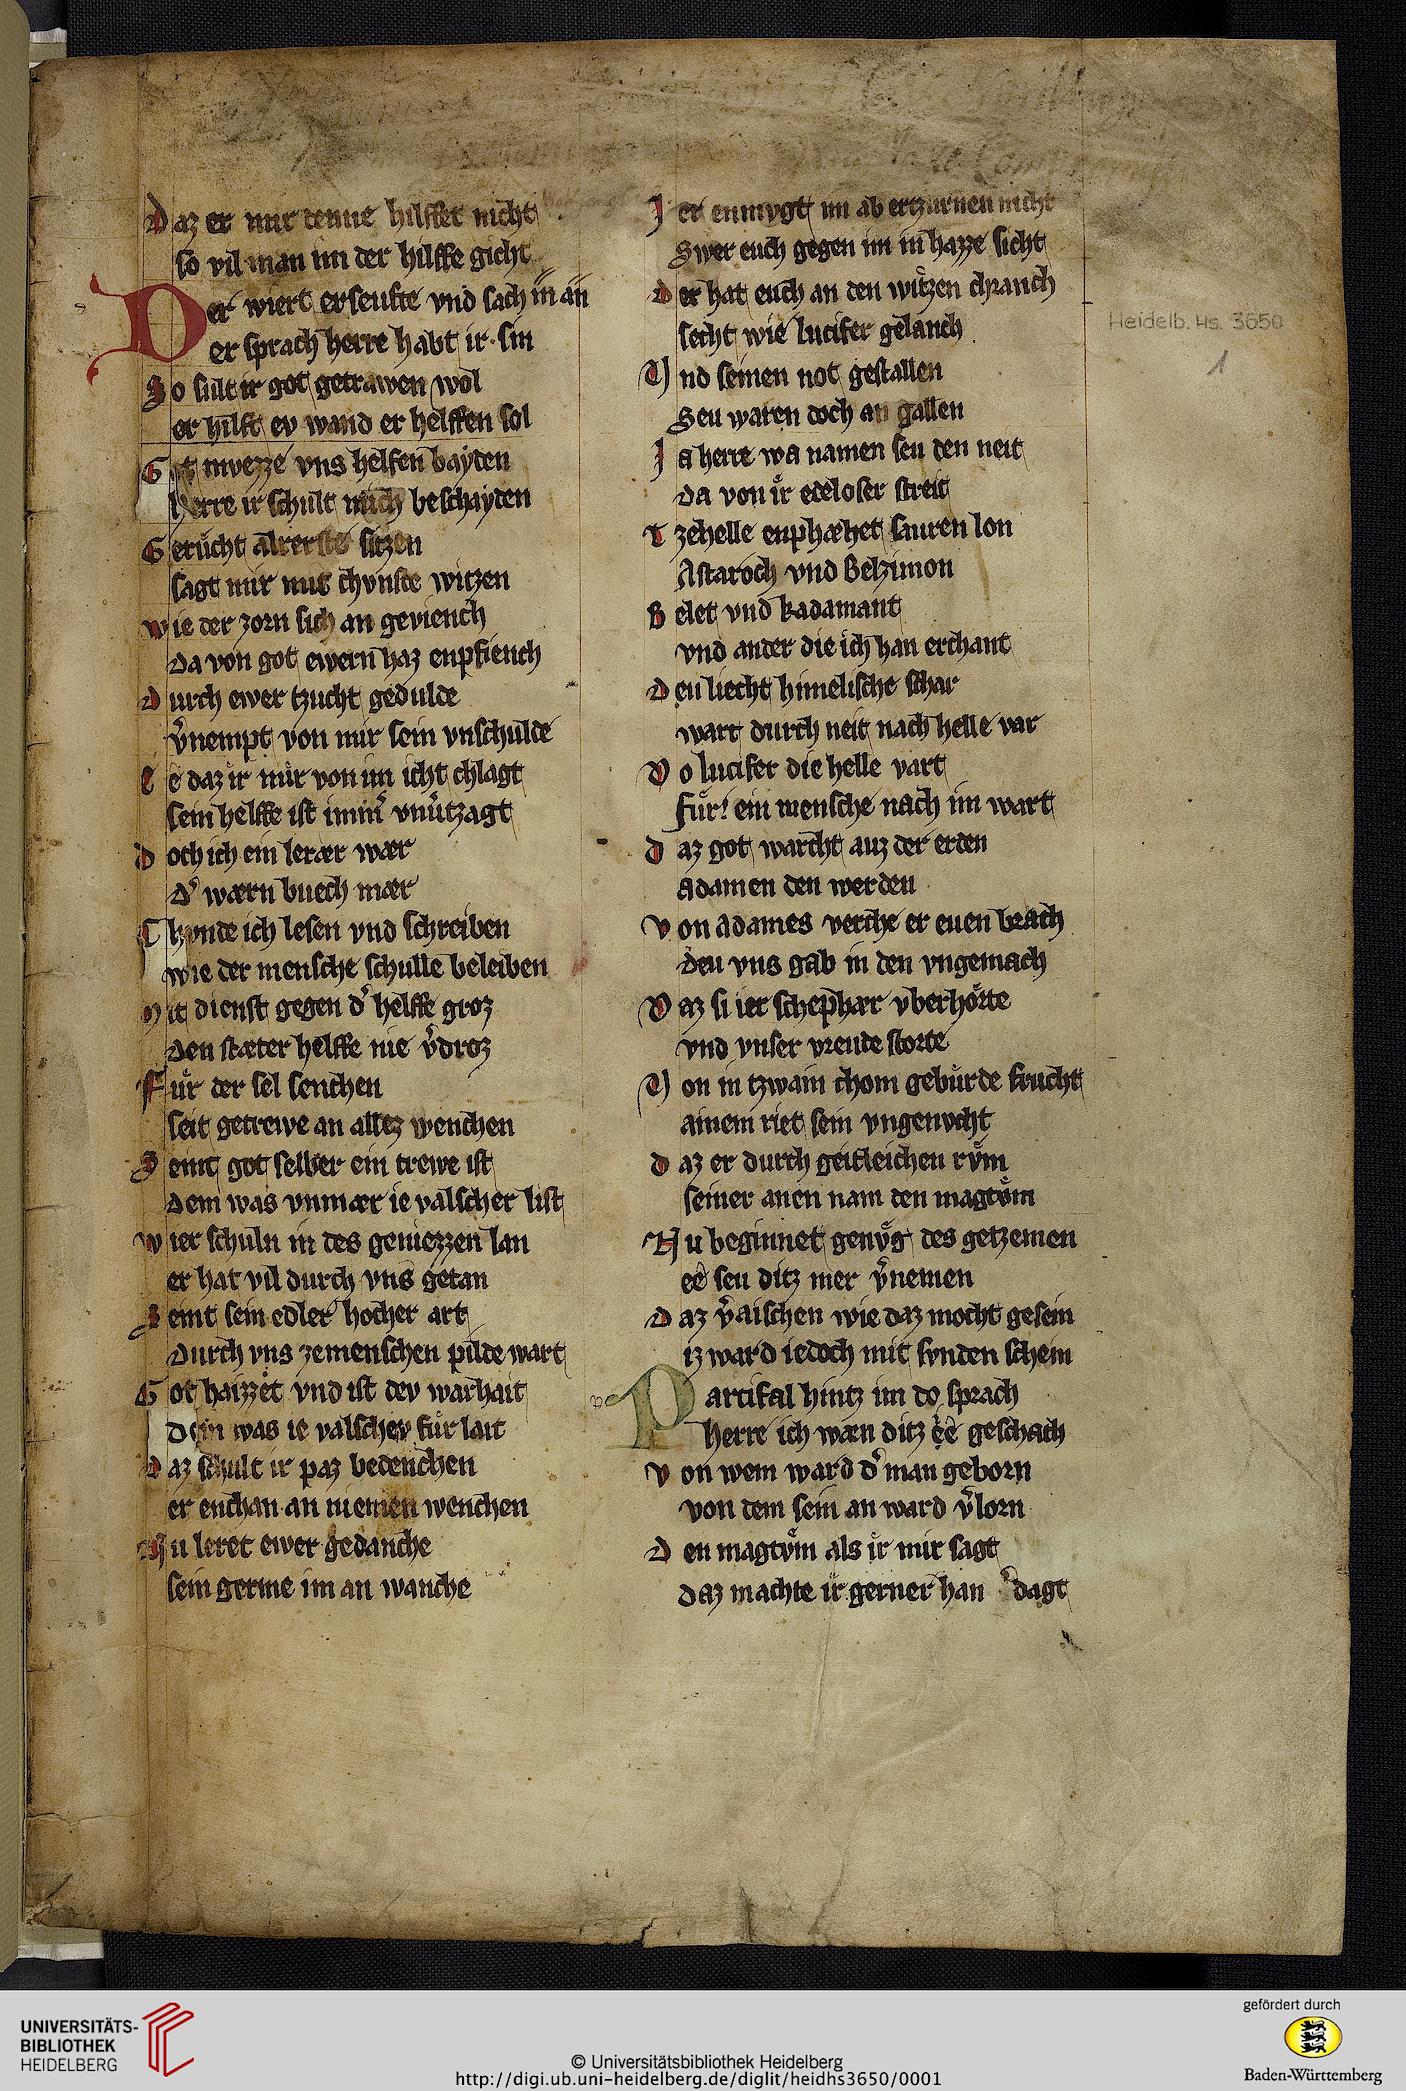 Daz er mir denne hilffet nicht
so vil man im der hilffe gicht
Der wiert erseufte vnd sach in an
er sprach herre habt ir sin
So sult ir got getrawen wol
er hilft ev wand er helffen sol
Got mvezze vns helfen bayden
herre ir schult mich beschayden
Gerůcht alrerste sitzen
sagt mir mit chvnste witzen
wie der zorn sich an geviench
da von got ewern haz enpfiench
Durch ewer tzucht gedulde
v̉nempt von mir sein vnschulde
Ee daz ir mir von im icht chlagt
sein helffe ist imm̉ vnůtzagt
doch ich ein lerær wær
d̉ wærn buech mær
Chvnde ich lesen vnd schreiben
wie der mensche schulle beleiben
Mit dienst gegen d̉ helffe groz
den stæter helffe nie v̉droz
Fůr der sel senchen
seit getrewe an allez wenchen
Seint got selber ein trewe ist
dem was vnmær ie valscher list
wier schuln in des geniezzen lan
er hat vil durch vns getan
Seint sein edler hocher art
durch vns zemenschen pilde wart
Got haizzet vnd ist dev warhait
dem was ie valschev fůr lait
Daz schult ir paz bedenchen
er enchan an niemen wenchen
Nu leret ewer gedanche
sein germe im an wanche
Ir enmvgt im ab ertzurnen nicht
Swer euch gegen im in hazze sicht
der hat euch an den witzen chranch
secht wie lucifer gelanch
Vnd seinen not gestallen
Seu waren doch an gallen
Ja herre wa namen seu den neit
da von ir edeloser streit
Tzehelle enphæhet sauren lon
Astaroch vnd Belzimon
Belet vnd kadamant
vnd ander die ich han erchant
Deu liecht himelische schar
wart durch neit nach helle var
Do lucifer die helle vart
fůr! ein mensche nach im wart
daz got warcht auz der erden
adamen den werden
von adames verche er euen brach
deu vns gab in den vngemach
Daz si ier schephær vberhörte
vnd vnser vreude storte
Von in tzwain chom gebůrde frucht
ainem riet sein vngenvcht
daz er durch geitleichen rům
seiner anen nam den magtům
Nu beginnet genůg des getzemen
ee seu ditz mer v̉nemen
Daz v̉aischen wie daz mocht gesein
iz ward iedoch mit svnden schein
Partifal hintz im do sprach
herre ich wæn ditz ee geschach
von wem ward d̉ man geborn
von dem sein an ward v̉lorn
Den magtům als ir mir sagt
daz machte ir gerner han v̉dagt
Heidelb. Hs. 3650
1
UNIVERSITÄTS-
BIBLIOTHEK
HEIDELBERG
© Universitätsbibliothek Heidelberg
http://digi.ub.uni-heidelberg.de/diglit/heidhs3650/0001
gefördert durch
Baden-Württemberg